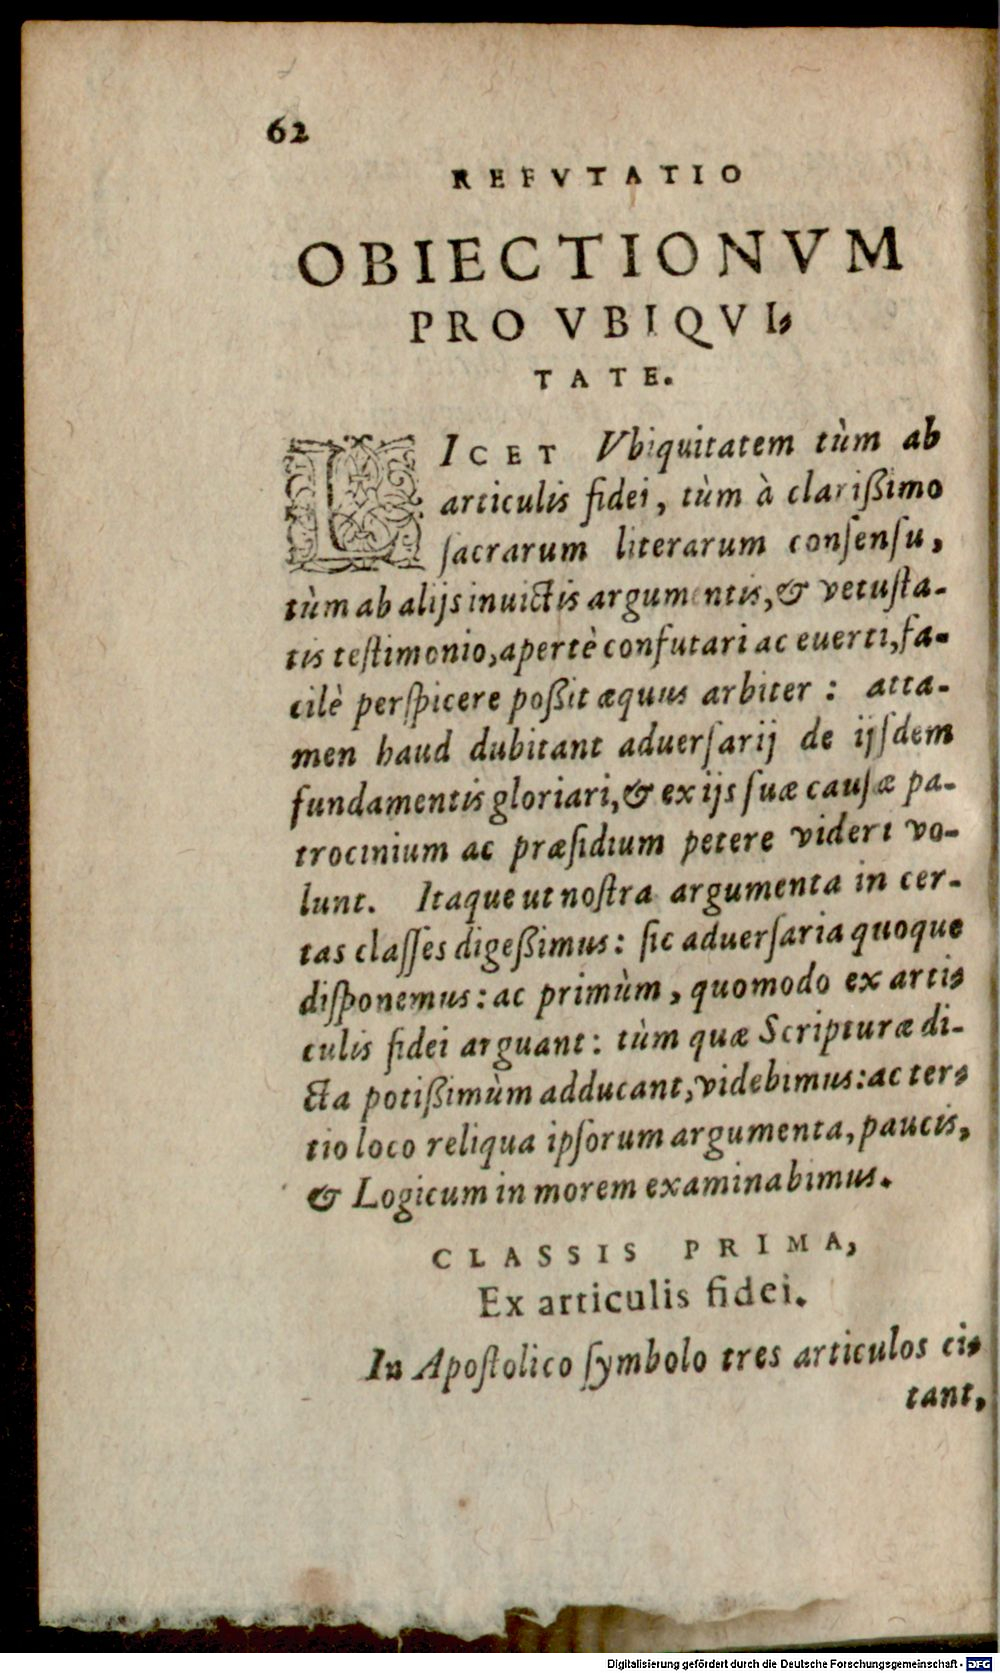 62
REFVTATIO
OBIECTIONVM
PRO VBIQVI-
TATE.
LICET Vbiquitatem tùm ab
articulis fidei, tùm à clarißimo
ſacrarum literarum conſenſu,
tùm ab alijs inuictis argumentis, & vetuſta-
tis teſtimonio, apertè confutari ac euerti, fa-
cilè perſpicere poßit æquus arbiter: atta-
men haud dubitant aduerſarij de ijſdem
fundamentis gloriari, & ex ijs ſuæ cauſæ pa-
trocinium ac præſidium petere videri vo-
lunt. Itaque ut noſtra argumenta in cer-
tas claſſes digeßimus: ſic aduerſaria quoque
diſponemus: ac primùm, quomodo ex arti-
culis fidei arguant: tùm quæ Scripturæ di-
cta potißimùm adducant, videbimus: ac ter-
tio loco reliqua ipſorum argumenta, paucis,
& Logicum in morem examinabimus.
CLASSIS PRIMA,
Ex articulis fidei.
In Apoſtolico ſymbolo tres articulos ci-
tant,
Digitalisierung gefördert durch die Deutsche Forschungsgemeinschaft - DFG